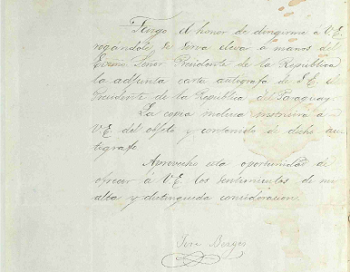 Tengo el honor de dirigirme á V.E.
rogándole, se sirva elevar á manos del
Exmo. Señor Presidente de la República
la adjunta carta autógrafa de S.E. el
Presidente de la República del Paraguay.
La copia inclusa instruirá a
V.E. del objeto y contenido de dicho au-
tógrafo.
Aprovecho esta oportunidad de
ofrecer á V.E. los sentimientos de mi
alta y distinguida consideracion
José Berges